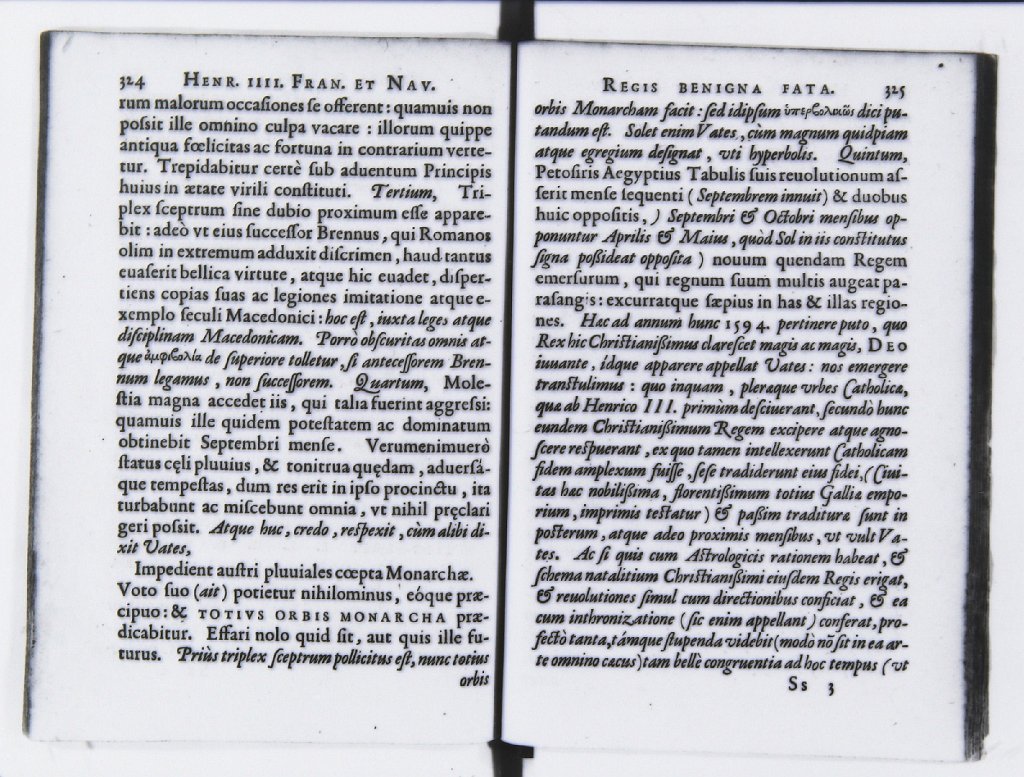 324 HENR. IIII. FRAN. ET NAV.
rum malorum occaſiones ſe offerent : quamuis non
poſsit ille omnino culpa vacare : illorum quippe
antiqua fœlicitas ac fortuna in contrarium verte-
tur. Trepidabitur certè ſub aduentum Principis
huius in ætate virili conſtituti. Tertium, Tri-
plex ſceptrum ſine dubio proximum eſſe appare-
bit : adeò vt eius ſucceſſor Brennus, qui Romanos
olim in extremum adduxit diſcrimen, haud tantus
euaſerit bellica virtute, atque hic euadet, diſper-
tiens copias ſuas ac legiones imitatione atque e-
xemplo ſeculi Macedonici : hoc eſt, iuxta leges atque
diſciplinam Macedonicam. Porrò obſcuritas omnis at-
que ἀμφιβολία de ſuperiore tolletur, ſi anteceſſorem Bren-
num legamus, non ſucceſſorem. Quartum, Mole-
ſtia magna accedet iis, qui talia fuerint aggreſsi:
quamuis ille quidem poteſtatem ac dominatum
obtinebit Septembri menſe. Verumenimuerò
ſtatus cęli pluuius, & tonitrua quędam, aduerſá-
que tempeſtas, dum res erit in ipſo procinctu, ita
turbabunt ac miſcebunt omnia, vt nihil pręclari
geri poſsit. Atque huc, credo, reſpexit, cùm alibi di-
xit Vates,
Impedient auſtri pluuiales cœpta Monarchæ.
Voto ſuo (ait) potietur nihilominus, eóque præ-
cipuo: & TOTIVS ORBIS MONARCHA præ-
dicabitur. Effari nolo quid ſit, aut quis ille fu-
turus. Priùs triplex ſceptrum pollicitus eſt, nunc totius
orbis
REGIS BENIGNA FATA. 325
orbis Monarcham facit : ſed idipſum ὑπερβολικῶς dici pu-
tandum eſt. Solet enim Vates, cùm magnum quidpiam
atque egregium deſignat, vti hyperbolis. Quintum,
Petoſiris Aegyptius Tabulis ſuis reuolutionum aſ-
ſerit menſe ſequenti (Septembrem innuit) & duobus
huic oppoſitis, ) Septembri & Octobri menſibus op-
ponuntur Aprilis & Maius, quòd Sol in iis conſtitutus
ſigna poßideat oppoſita ) nouum quendam Regem
emerſurum, qui regnum ſuum multis augeat pa-
raſangis : excurratque ſæpius in has & illas regio-
nes. Hac ad annum hunc 1594. pertinere puto, quo
Rex hic Chriſtianißimus clareſcet magis ac magis, DEO
iuuante, idque apparere appellat Vates: nos emergere
tranſtulimus : quo inquam, pleræque vrbes Catholicæ,
quæ ab Henrico III. primùm deſciuerant, ſecundò hunc
eundem Chriſtianißimum Regem excipere atque agno-
ſcere reſpuerant, ex quo tamen intellexerunt Catholicam
fidem amplexum fuiſſe, ſeſe tradiderunt eius fidei, (Ciui-
tas hæc nobilißima, florentißimum totius Galliæ empo-
rium, imprimis teſtatur) & paßim traditura ſunt in
poſterum, atque adeo proximis menſibus, vt vult Va-
tes. Ac ſi quis cum Aſtrologicis rationem habeat, &
ſchema natalitium Chriſtianißimi eiuſdem Regis erigat,
& reuolutiones ſimul cum directionibus conficiat, & ea
cum inthronizatione (ſic enim appellant) conferat, pro-
fectò tanta, támque ſtupenda videbit (modò nõ ſit in ea ar-
te omnino cæcus) tam bellè congruentia ad hoc tempus (vt
Ss 3